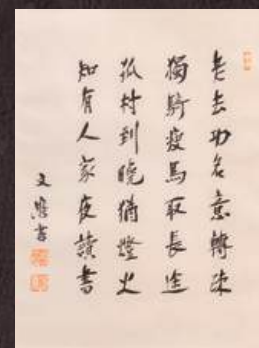 老去功名意轉疎
獨騎瘦馬取長途
孤村到曉猶燈火
知有人家夜讀書